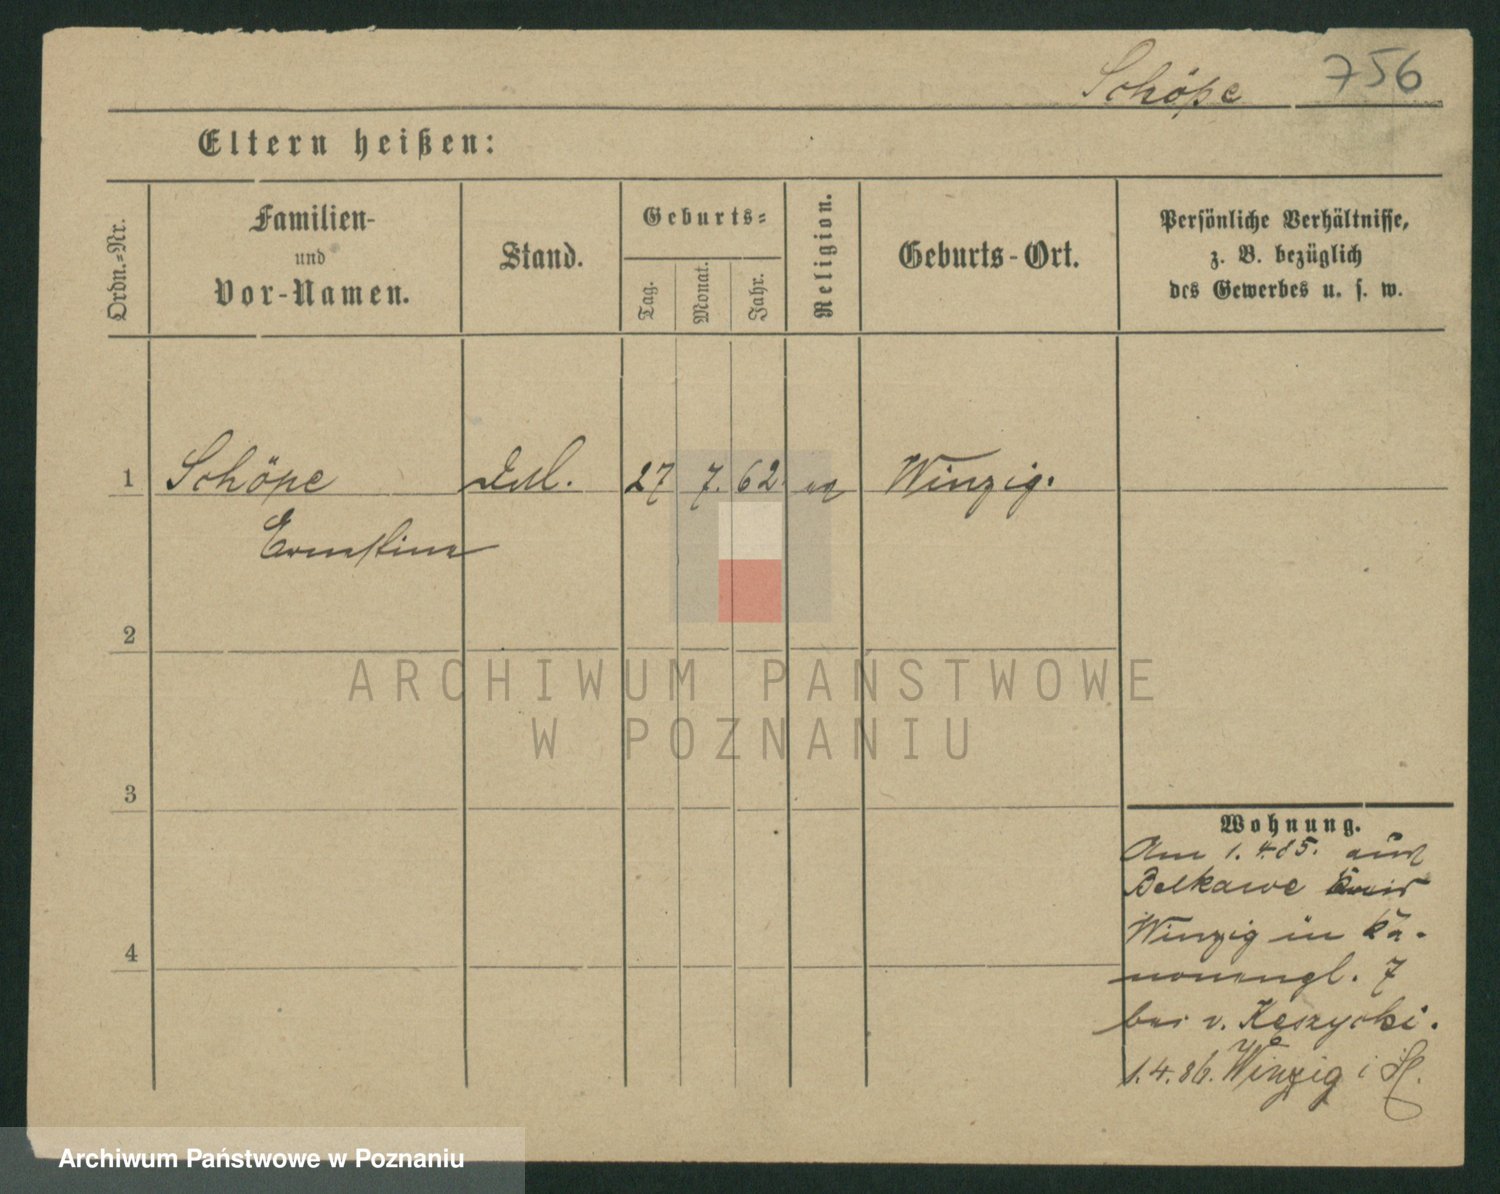 Schöpe 756
Eltern heißen:
Ordn.-Nr.
Familien-
und
Vor-Namen.
Stand.
Geburts-
Tag.
Monat.
Jahr.
Religion.
Geburts-Ort.
Persönliche Verhältnisse,
z. B. bezüglich
des Gewerbes u. s. w.
1 Schöpe 27 7. 62. Winzig.
Ernestine
2
ARCHIWUM PAŃSTWOWE
W POZNANIU
3
Wohnung.
Am 1.4.85. aus
Belkawe Kreis
Winzig in Ka-
4
nonengl. 7
bei v. Keszycki.
1.4.86. Winzig i
Archiwum Państwowe w Poznaniu